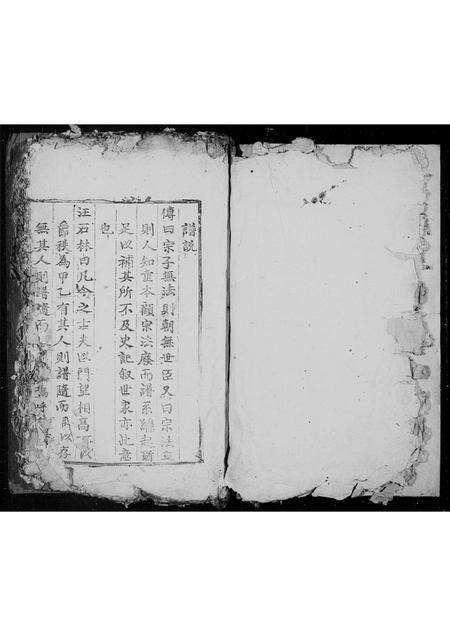 譜說
傳曰宗子無法則朝無世臣又曰宗法立
則人知重本顧宗法廢而譜系雖起猶
足以補其所不及史記叙世家亦此意
也
汪石林曰凡今之士夫以門望相高
爵秩為甲乙有其人則譜隨而以存
無其人則譜